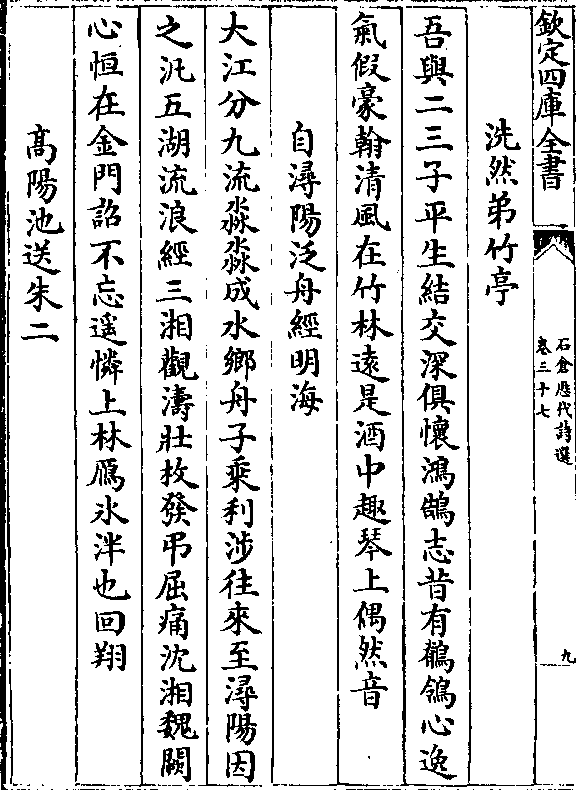 欽定四庫全書
石倉歷代詩選
卷三十七
九
洗然弟竹亭
吾與二三子平生結交深俱懷鴻鵠志昔有鶺鴒心逸
氣假豪翰清風在竹林遠是酒中趣琴上偶然音
自潯陽泛舟經明海
大江分九流淼淼成水鄉舟子乘利涉往來至潯陽因
之汎五湖流浪經三湘觀濤壯枚發弔屈痛沈湘魏闕
心恒在金門詔不忘遥憐上林鴈氷泮也回翔
髙陽池送朱二